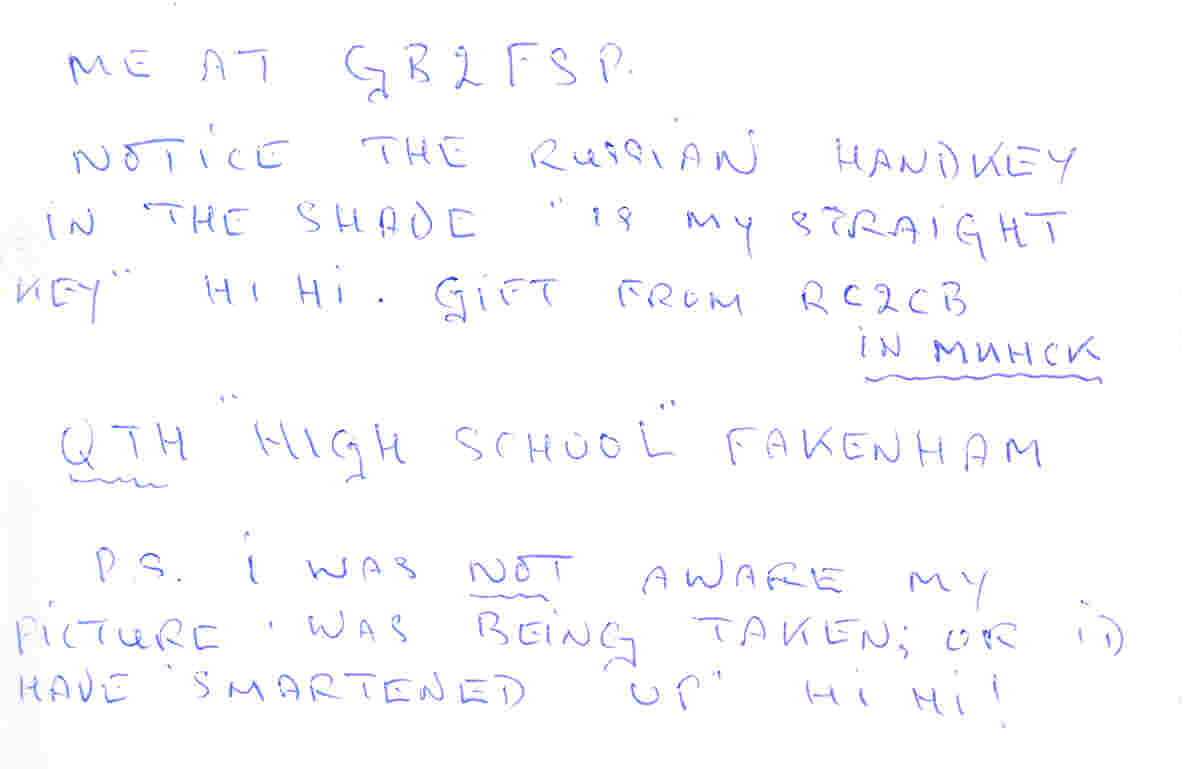 ME AT GB2FSP.
NOTICE THE RUSSIAN HANDKEY
IN THE SHADE "IS MY STRAIGHT
KEY" HI HI. GIFT FROM RC2CB
IN МИНСК
QTH "HIGH SCHOOL" FAKENHAM
P.S. I WAS NOT AWARE MY
PICTURE WAS BEING TAKEN; OR I'D
HAVE "SMARTENED UP" HI HI!